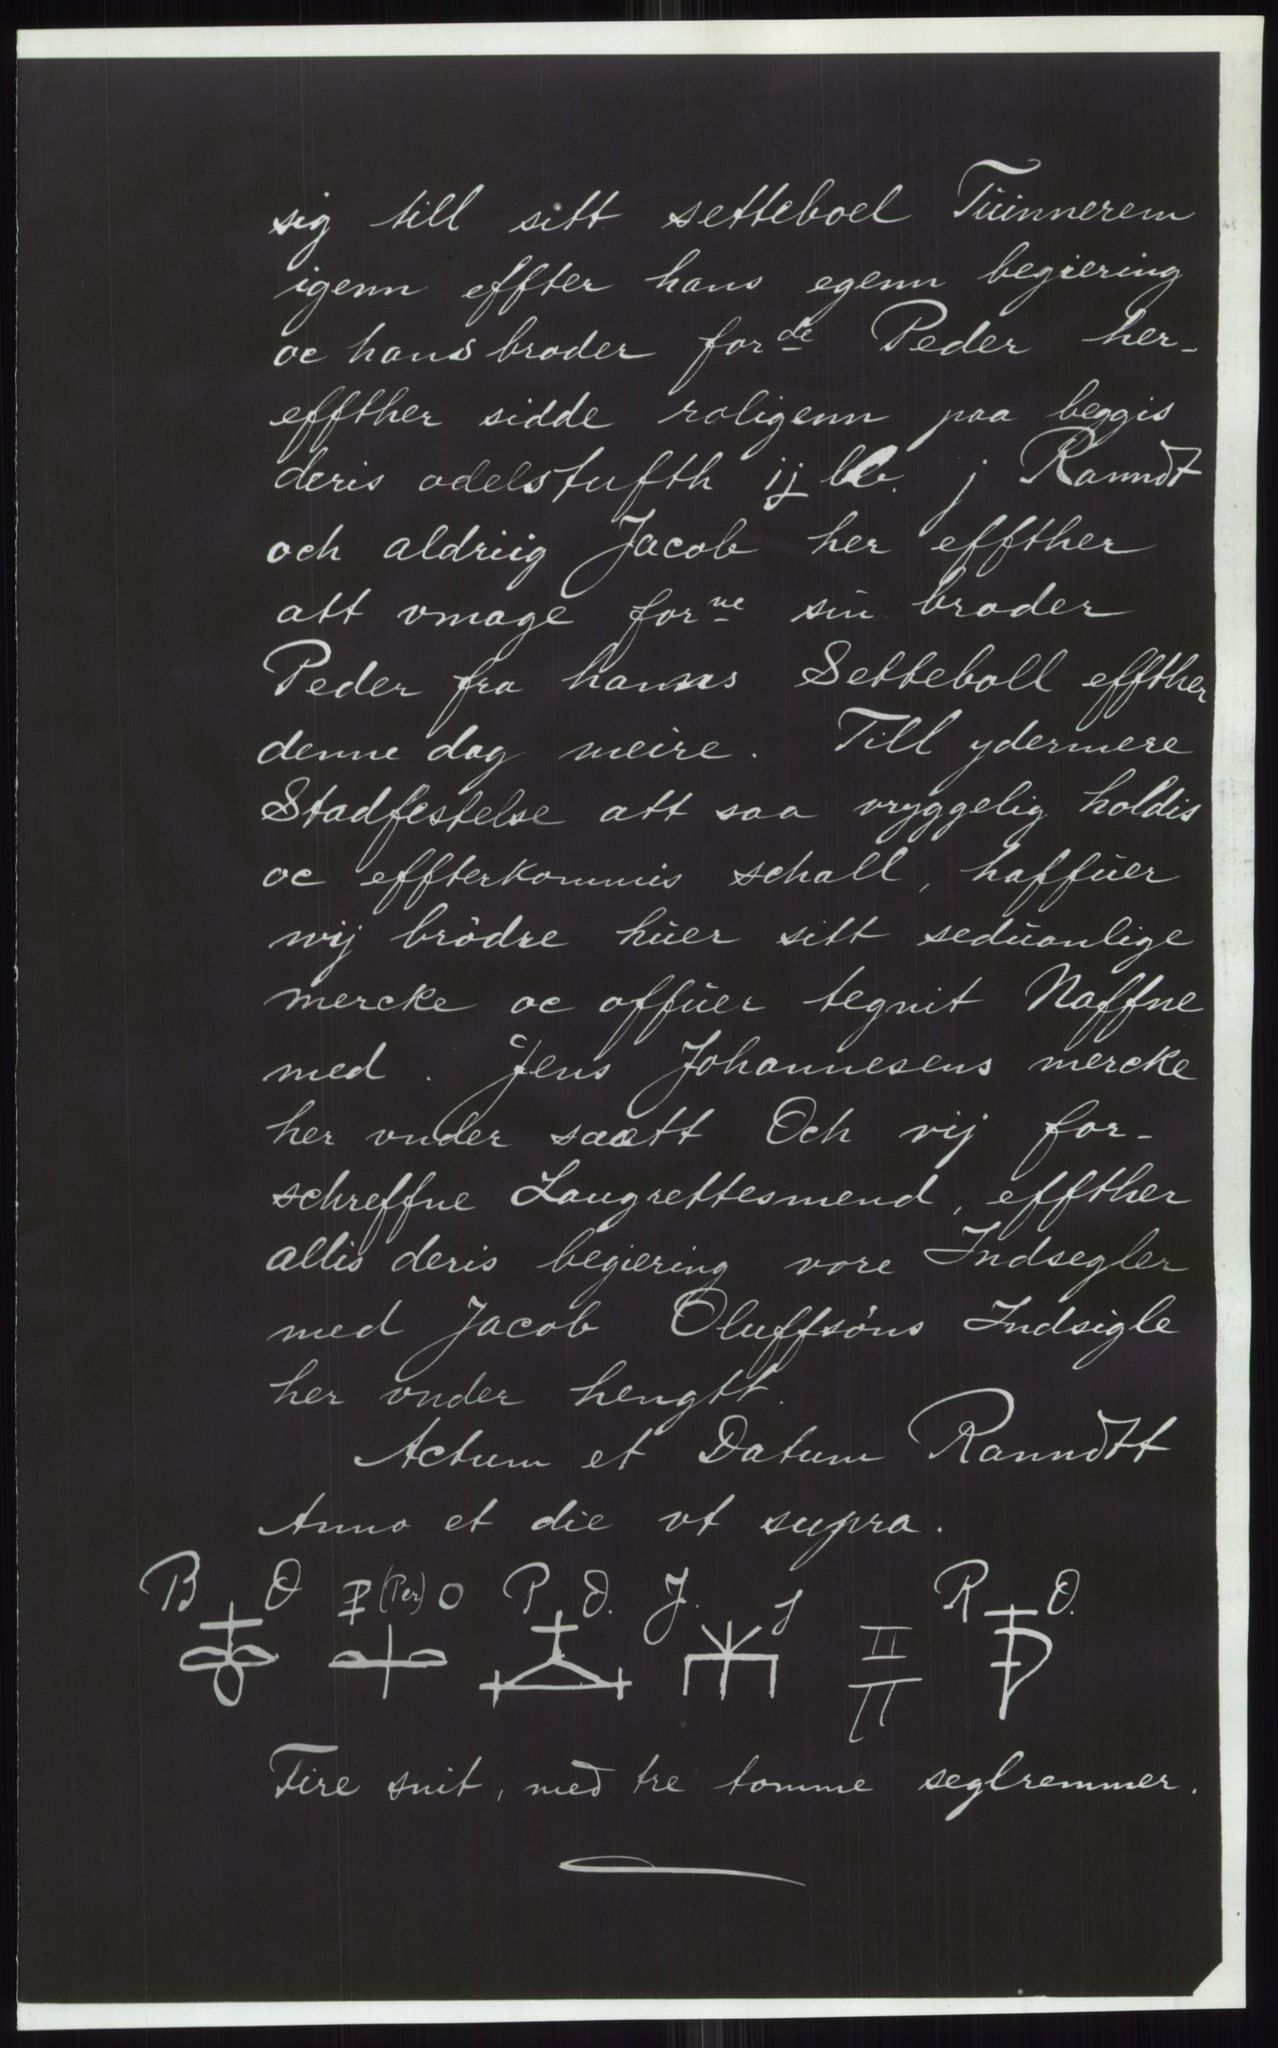 sig till sitt setteboel Tüinnerem
igenn effter hans egenn begiering
oc hans broder forde Peder her-
effther sidde roligenn paa beggis
deris odelstufth ij lb. j Ranndt
och aldriig Jacob her effther
att vmage forne sin broder
Peder fra hanns Setteboll effther
denne dag meire. Till ydermere
Stadfestelse att saa vryggelig holdis
oc effterkommis schall, haffüer
wij brödre hüer sitt sedüanlige
mercke oc offüer tegnit Naffne
med. Jens Johannesens mercke
her vnder saatt Och vij for-
schreffne Laugrettesmend, effther
allis deris begiering vore Indsegler
med Jacob Oluffsöns Indsigle
her vnder hengtt.
Actum et Datum Ranndtt
Anno et die vt supra.
B O P (Per) O P O. J. J R O.
II
II
Fire snit, med tre tomme seglremmer.